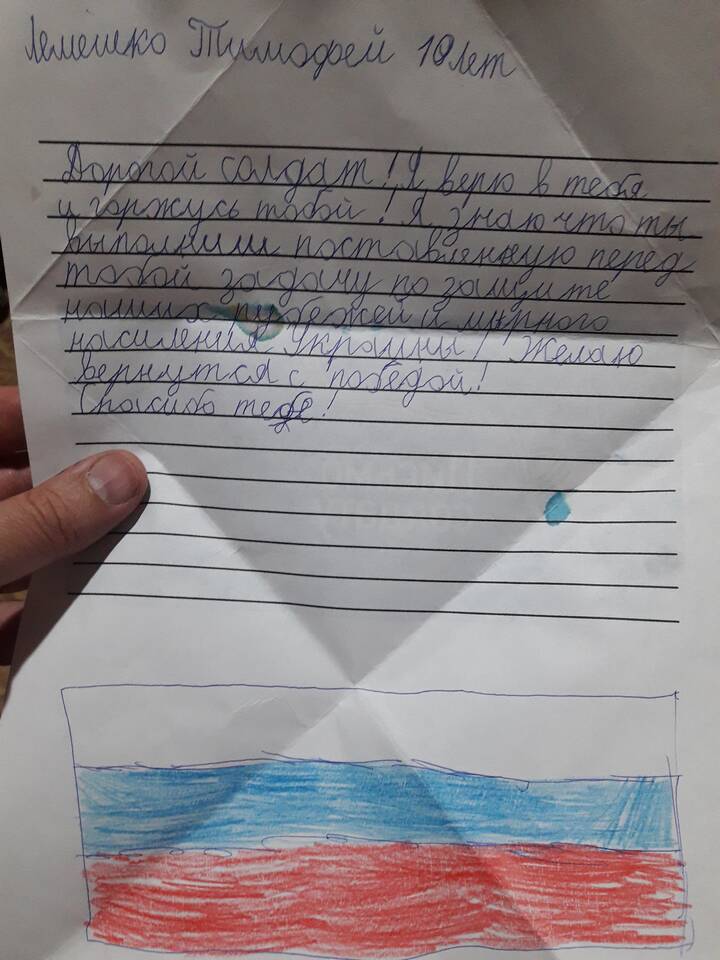 Лемешко Тимофей 10 лет
Дорогой солдат! Я верю в тебя
и горжусь тобой! Я знаю что ты
выполниш поставленную перед
тобой задачу по защите
наших рубежей и мирного
насиления Украины! Желаю
вернутся с победой!
Спасибо тебе!